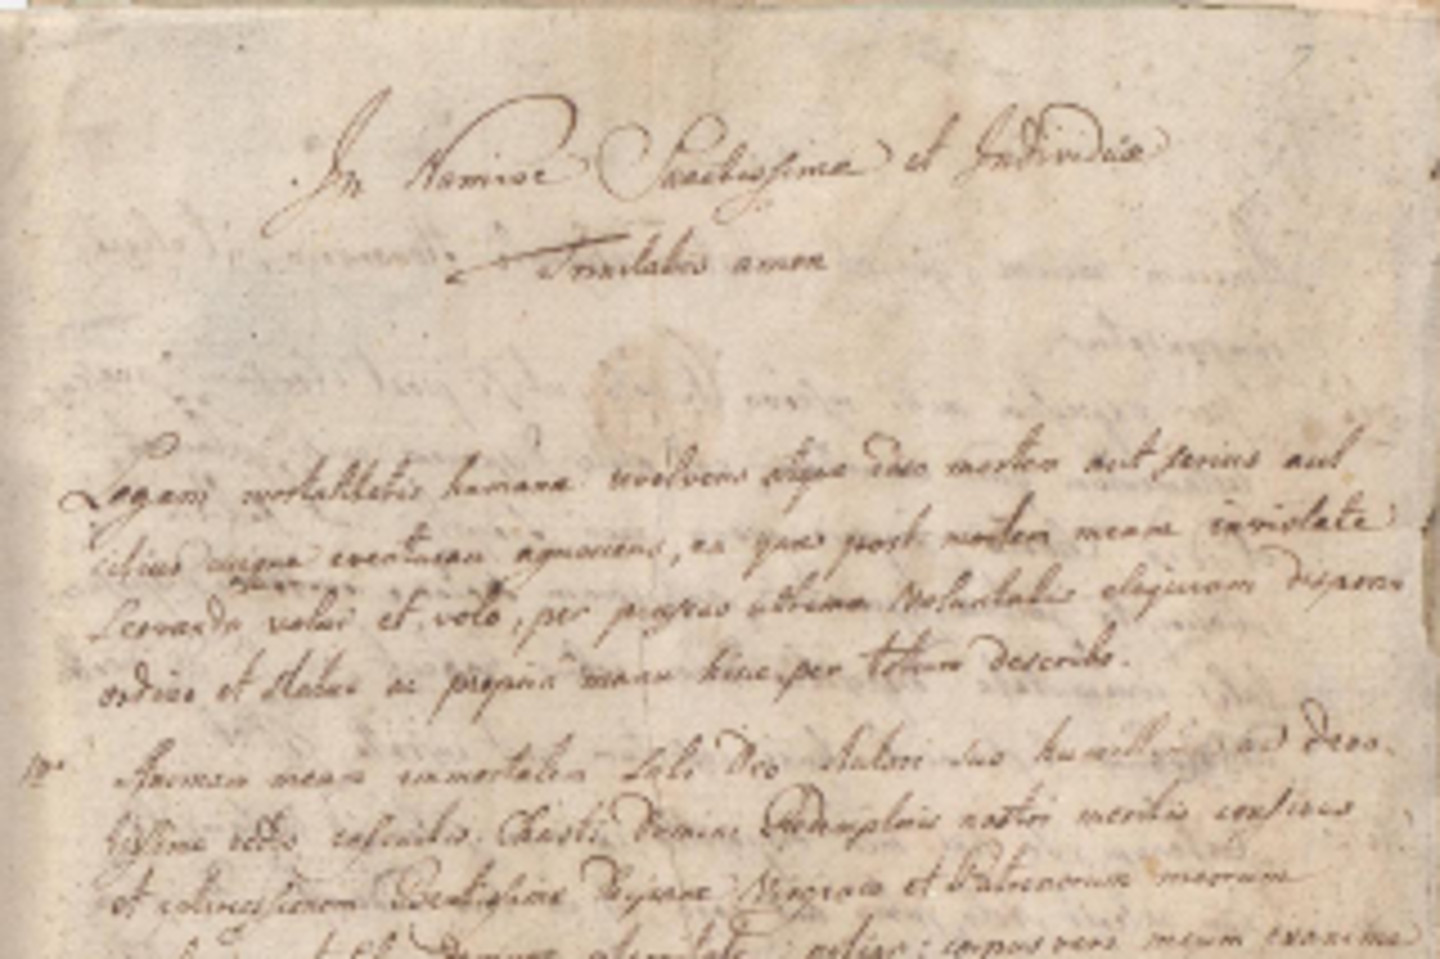 In Nomine Sanctissimae et Individuae
Trinitatis amen
Legem mortalitatis humanae revolvens atque ideo mortem aut serius aut
citius eventuram agnoscens, ea quae post mortem meam inviolate
Servanda volui et volo, per ultimae Voluntatis
ordine et statu ac propria manu hisce per totum describo.
1mo Animam meam immortalem soli Deo Autori suo humillime ac devo-
tissime Christi Domini Redemptoris nostri meritis confisus
et intercessionem Beatissimae Virginis et Patronorum meorum
corpus vero meum exanime